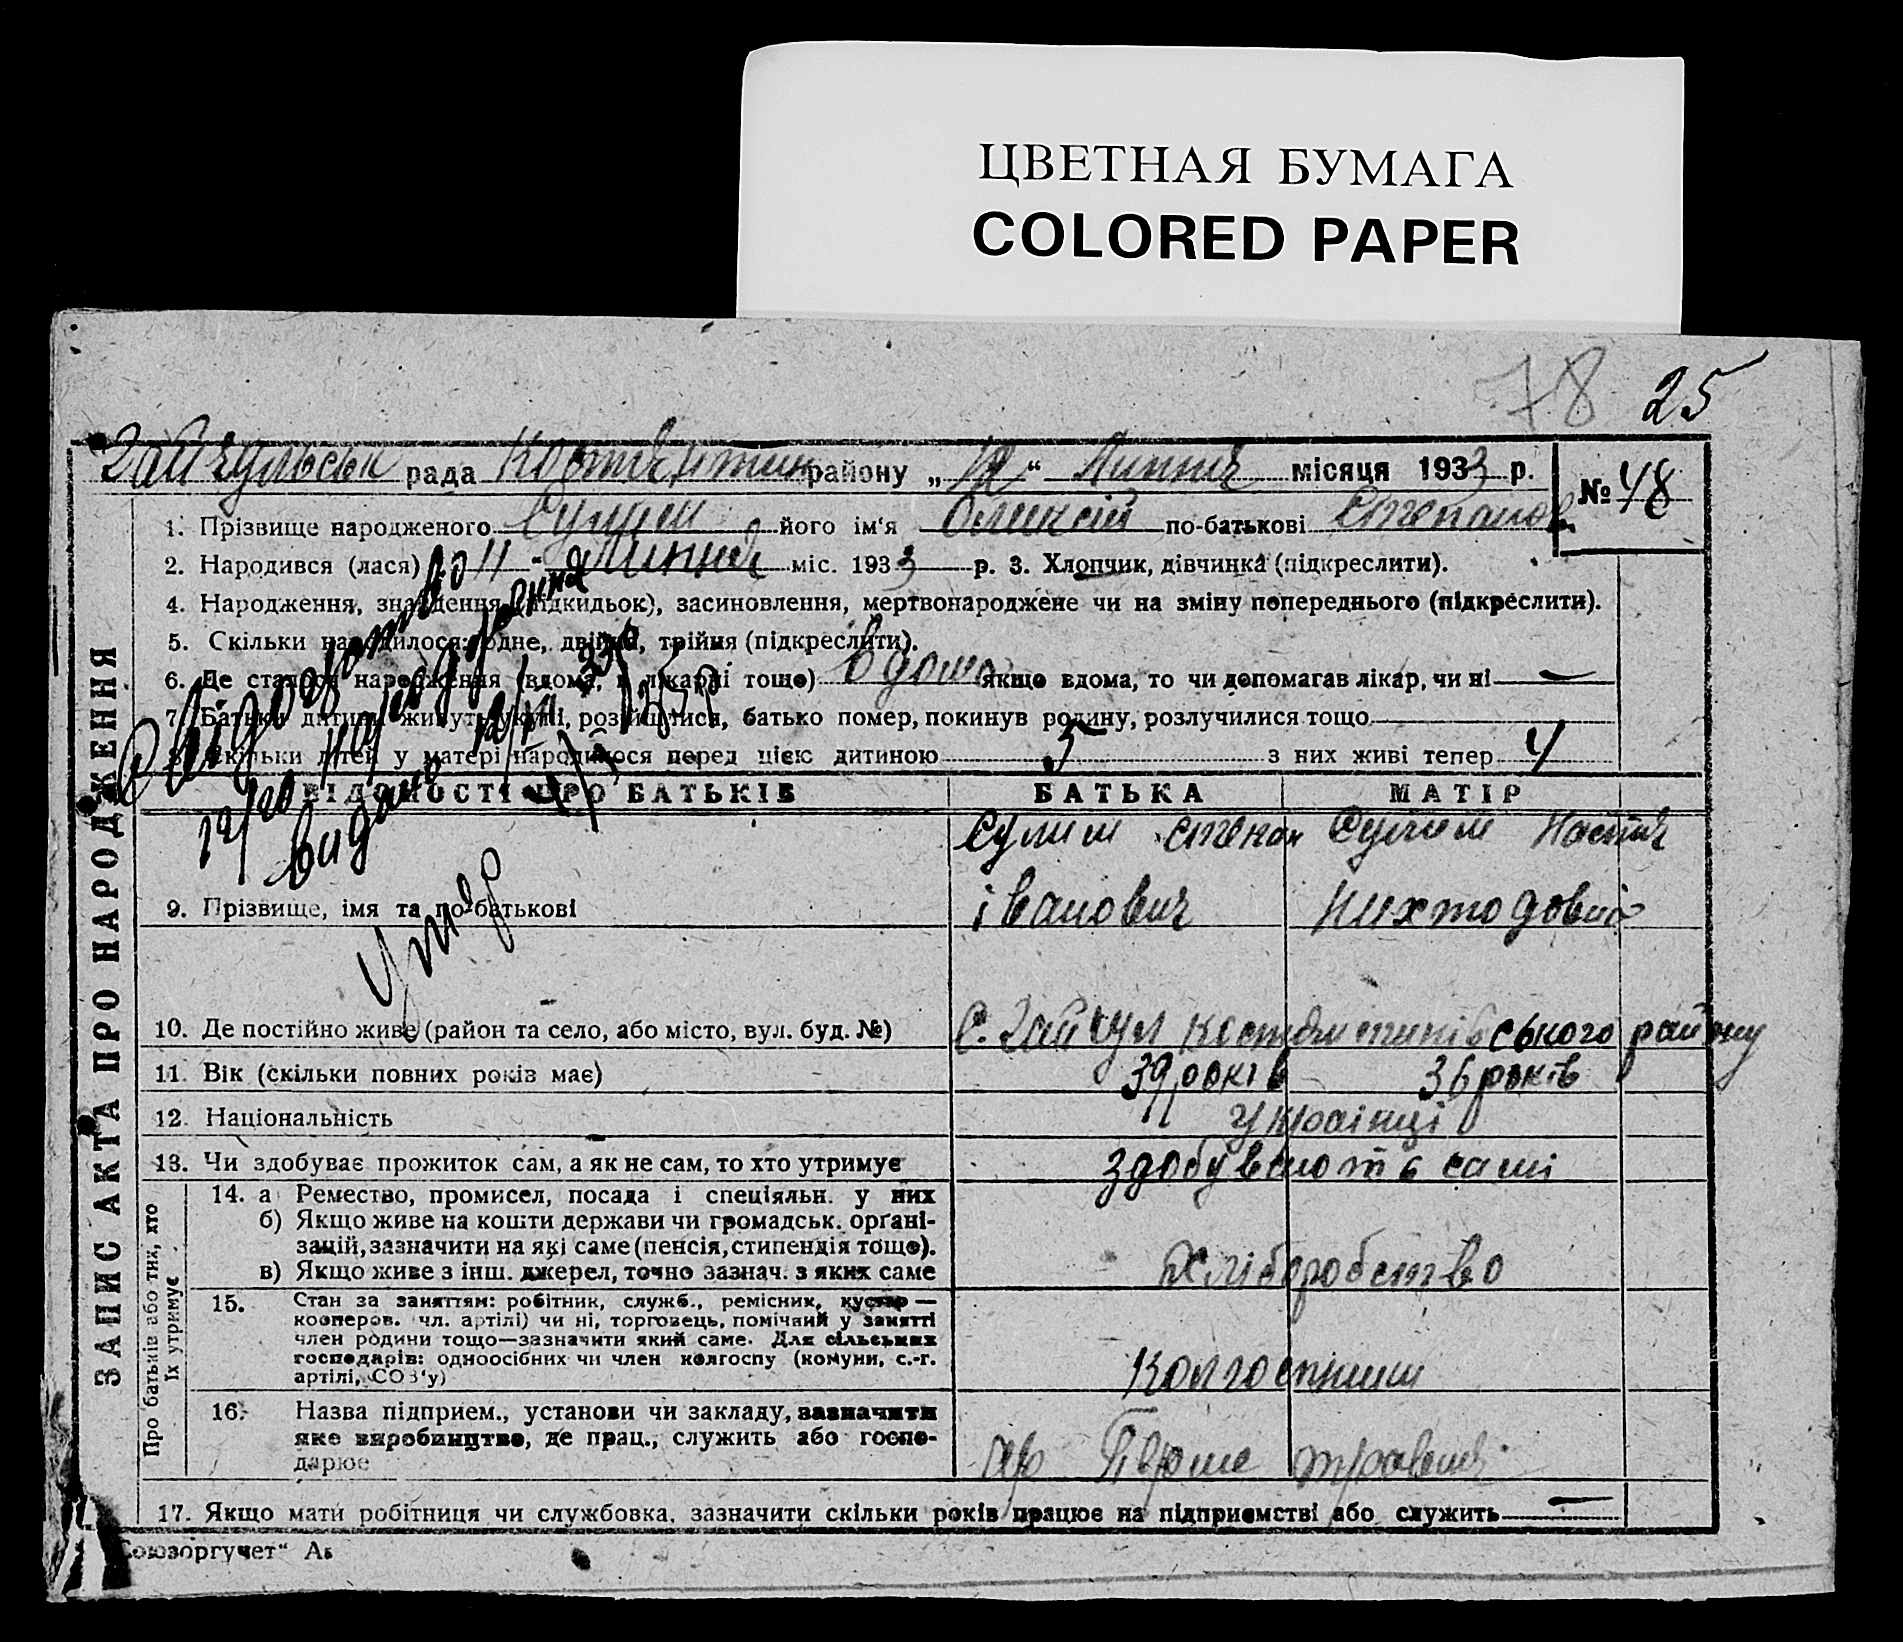 ЦВЕТНАЯ БУМАГА
COLORED PAPER
78 25
рада Костянтин району „12“ Липня місяця 1933 р. № 48
1. Прізвище народженого Сулим його ім‘я Олексій по-батькові Степанов
2. Народився (лася) 11 Липня міс. 1933 р. 3. Хлопчик, дівчинка (підкреслити).
4. Народження, знайдення (підкидьок), засиновлення, мертвонароджене чи на зміну попереднього (підкреслити).
5. Скільки народилося: одне, двійня, трійня (підкреслити).
6. Де сталося народження (вдома, в лікарні тощо) вдома якщо вдома, то чи допомагав лікар, чи ні —
7. Батьки дитини живуть укупі, розійшлися, батько помер, покинув родину, розлучилися тощо
8. Скільки дітей у матері народилося перед цією дитиною 5 з них живі тепер 4
Видано
Умер
ЗАПИС АКТА ПРО НАРОДЖЕННЯ
ВІДОМОСТІ ПРО БАТЬКІВ БАТЬКА МАТІР
Сулим Степан Сулим Настя
9. Прізвище, імя та по-батькові Іванович
10. Де постійно живе (район та село, або місто, вул. буд. №) с. Костянтинівського району
11. Вік (скільки повних років має) 39 років 36 років
12. Національність Українці
13. Чи здобуває прожиток сам, а як не сам, то хто утримує здобувають самі
Про батьків або тих, хто їх утримує
14. а Ремество, промисел, посада і спеціяльн. у них
б) Якщо живе на кошти держави чи громадськ. органі-
зацій, зазначити на які саме (пенсія, стипендія тощо).
в) Якщо живе з інш. джерел, точно зазнач. з яких саме Хліборобство
15. Стан за заняттям: робітник, служб., ремісник, кустар —
кооперов. чл. артілі) чи ні, торговець, помічний у занятті
член родини тощо—зазначити який саме. Для сільських
господарів: одноосібник чи член колгоспу (комуни, с.-г.
артілі, СОЗ‘у) Колгоспники
16. Назва підприєм., установи чи закладу, зазначити
яке виробництво, де прац., служить або госпо-
дарює Перше травня
17. Якщо мати робітниця чи службовка, зазначити скільки років працює на підприємстві або служить —
Союзоргучет“